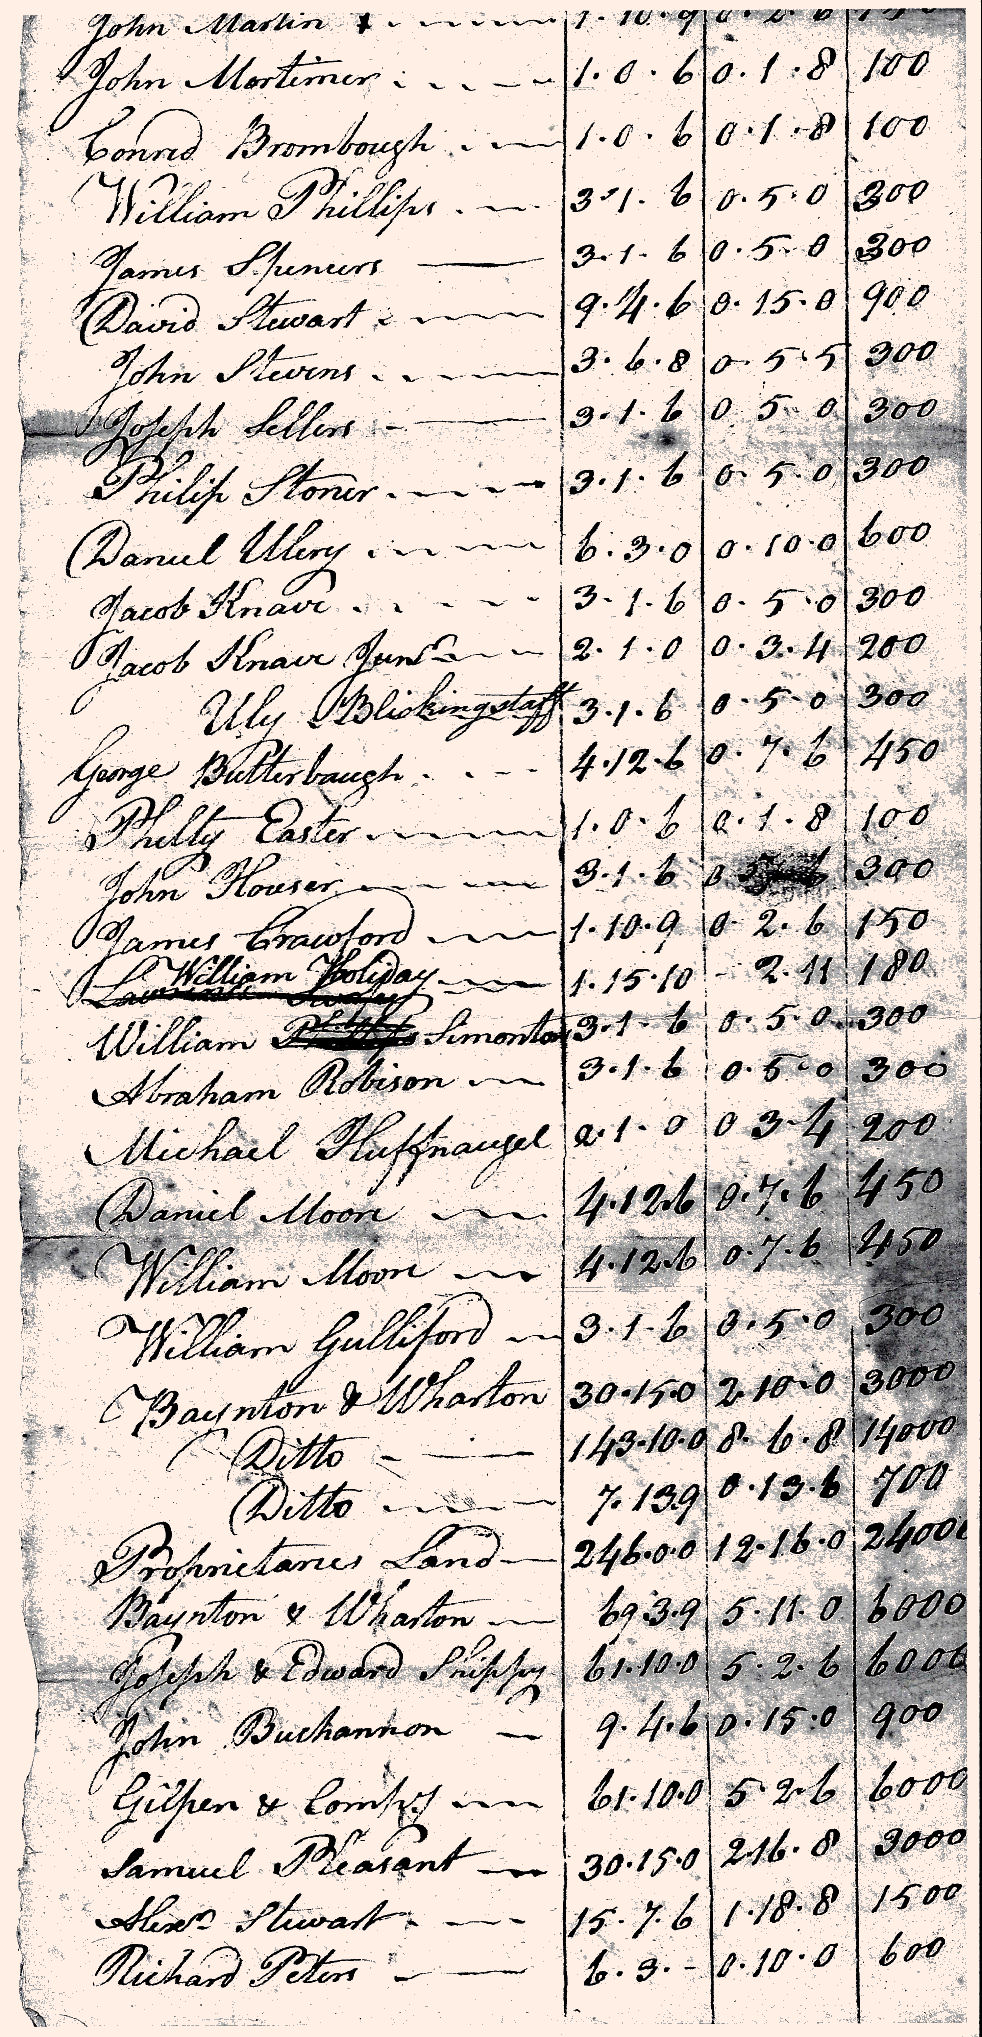 John Martin & 1.10.9 0.2.6 150
John Mortimer 1.0.6 0.1.8 100
Conrad Brombough 1.0.6 0.1.8 100
William Phillips 3.1.6 0.5.0 300
James Spencers 3.1.6 0.5.0 300
David Stewart 9.4.6 0.15.0 900
John Stevens 3.6.8 0.5.5 300
Joseph Sellers 3.1.6 0 5 0 300
Philip Stoner 3.1.6 0.5.0 300
Daniel Ulery 6.3.0 0.10.0 600
Jacob Knave 3.1.6 0.5.0 300
Jacob Knave Junr 2.1.0 0.3.4 200
Uly Blickingstaff 3.1.6 0.5.0 300
George Butterbaugh 4.12.6 0.7.6 450
Philty Easter 1.0.6 0.1.8 100
John Houser 3.1.6 0 300
James Crawford 1.10.9 0.2.6 150
William Holiday 1.15.10 2.11 180
William Simonton 3.1.6 0.5.0 300
Abraham Robison 3.1.6 0.5.0 300
Michael Huffnaugel 2.1.0 0 3.4 200
Daniel Moore 4.12.6 0.7.6 450
William Moore 4.12.6 0.7.6 450
William Gulliford 3.1.6 0.5.0 300
Baynton & Wharton 30.15.0 2.10.0 3000
Ditto 143.10.0 8.6.8 14000
Ditto 7.13.9 0.13.6 700
Proprietaries Land 246.0.0 12.16.0 24000
Baynton & Wharton 69.3.9 5.11.0 6000
Joseph & Edward Shippy 61.10.0 5.2.6 6000
John Buchannon 9.4.6 0.15.0 900
Gilpen & Compy 61.10.0 5.2.6 6000
Samuel Pleasant 30.15.0 2.16.8 3000
Alexr Stewart 15.7.6 1.18.8 1500
Richard Peters 6.3.- 0.10.0 600